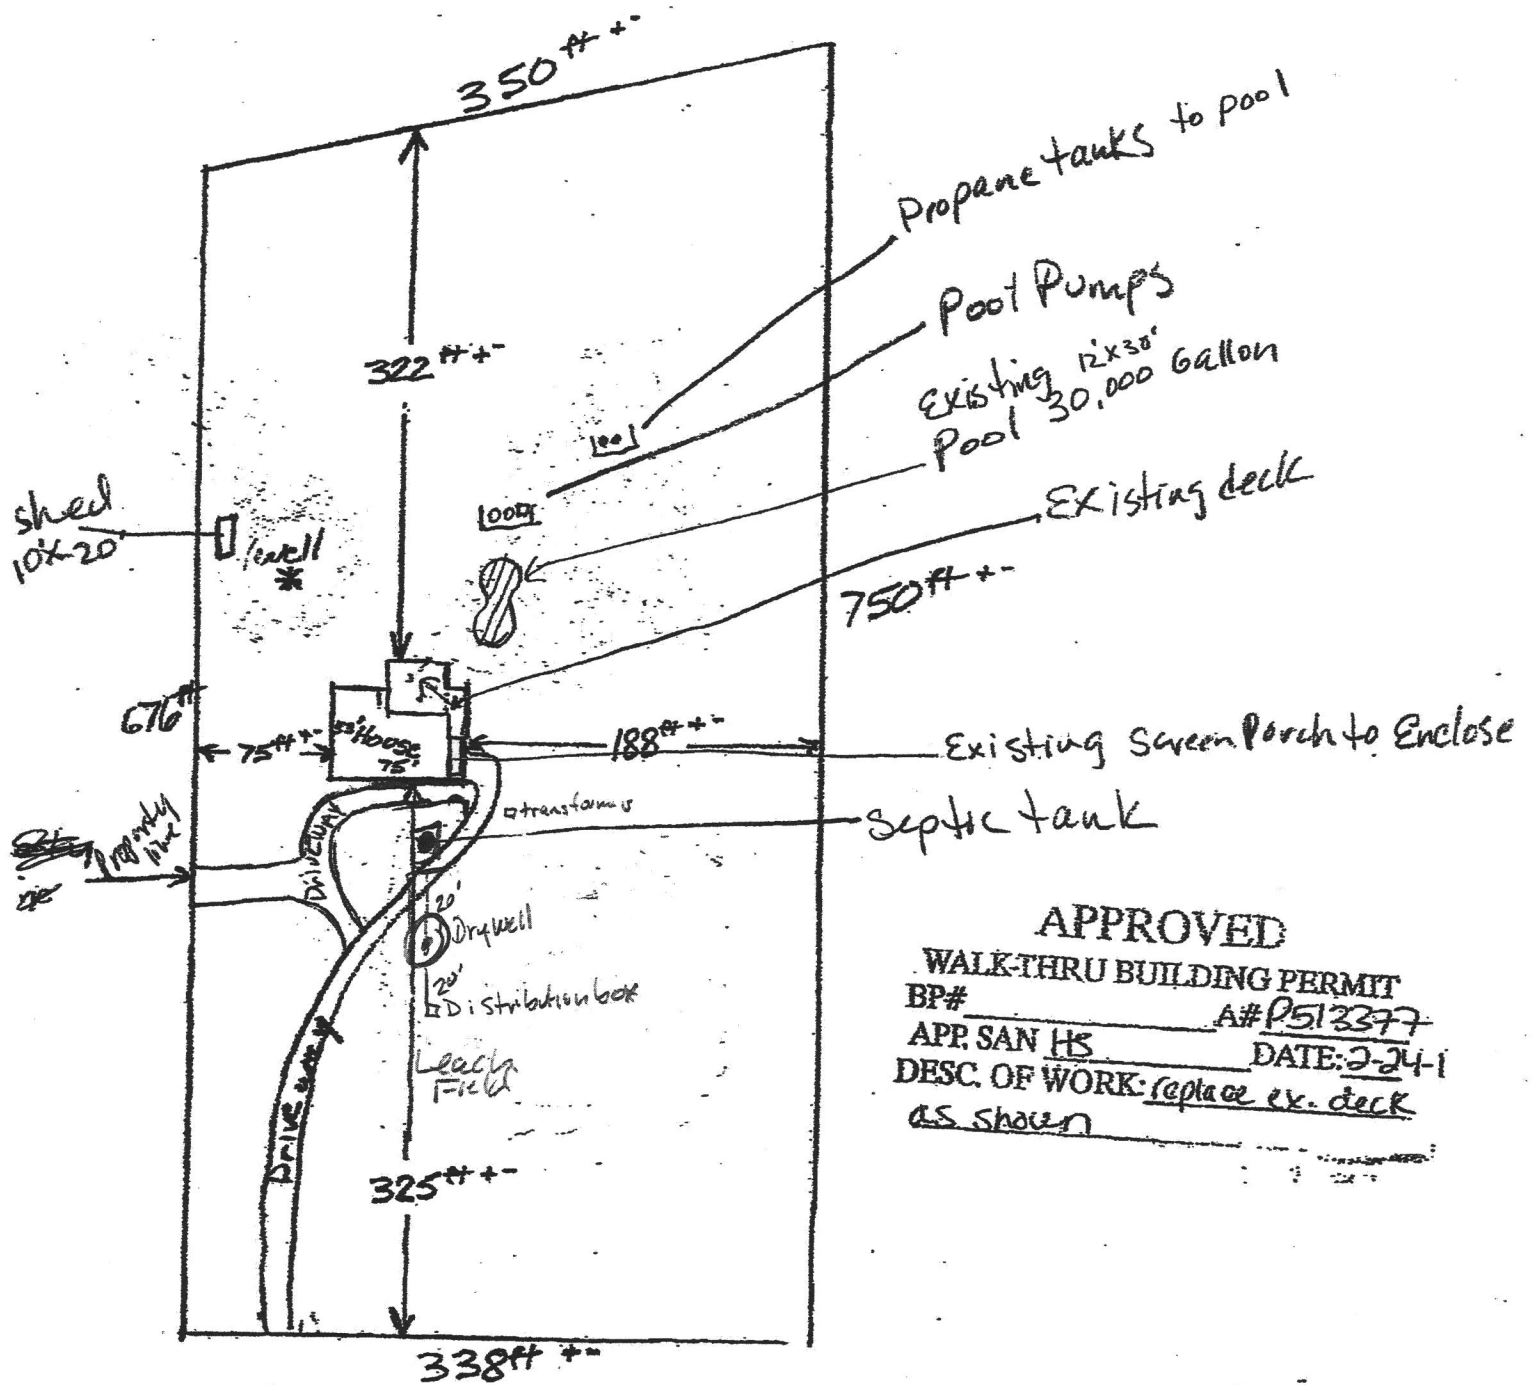 350 ft +-
Propane tanks to pool
Pool Pumps
322 ft +-
Existing 12'x30'
Pool 30,000 Gallon
Existing deck
shed
10'x20'
well
750 ft +-
676 ft
75 ft +-
House
75'
188 ft +-
Existing Screen Porch to Enclose
Property
line
Driveway
Septic tank
20'
Drywell
20'
Distribution box
Leach
Field
Driveway
325 ft +-
338 ft +-
APPROVED
WALK-THRU BUILDING PERMIT
BP# A# P513377
APP. SAN HS DATE: 2-24-1
DESC. OF WORK: replace ex. deck
as shown